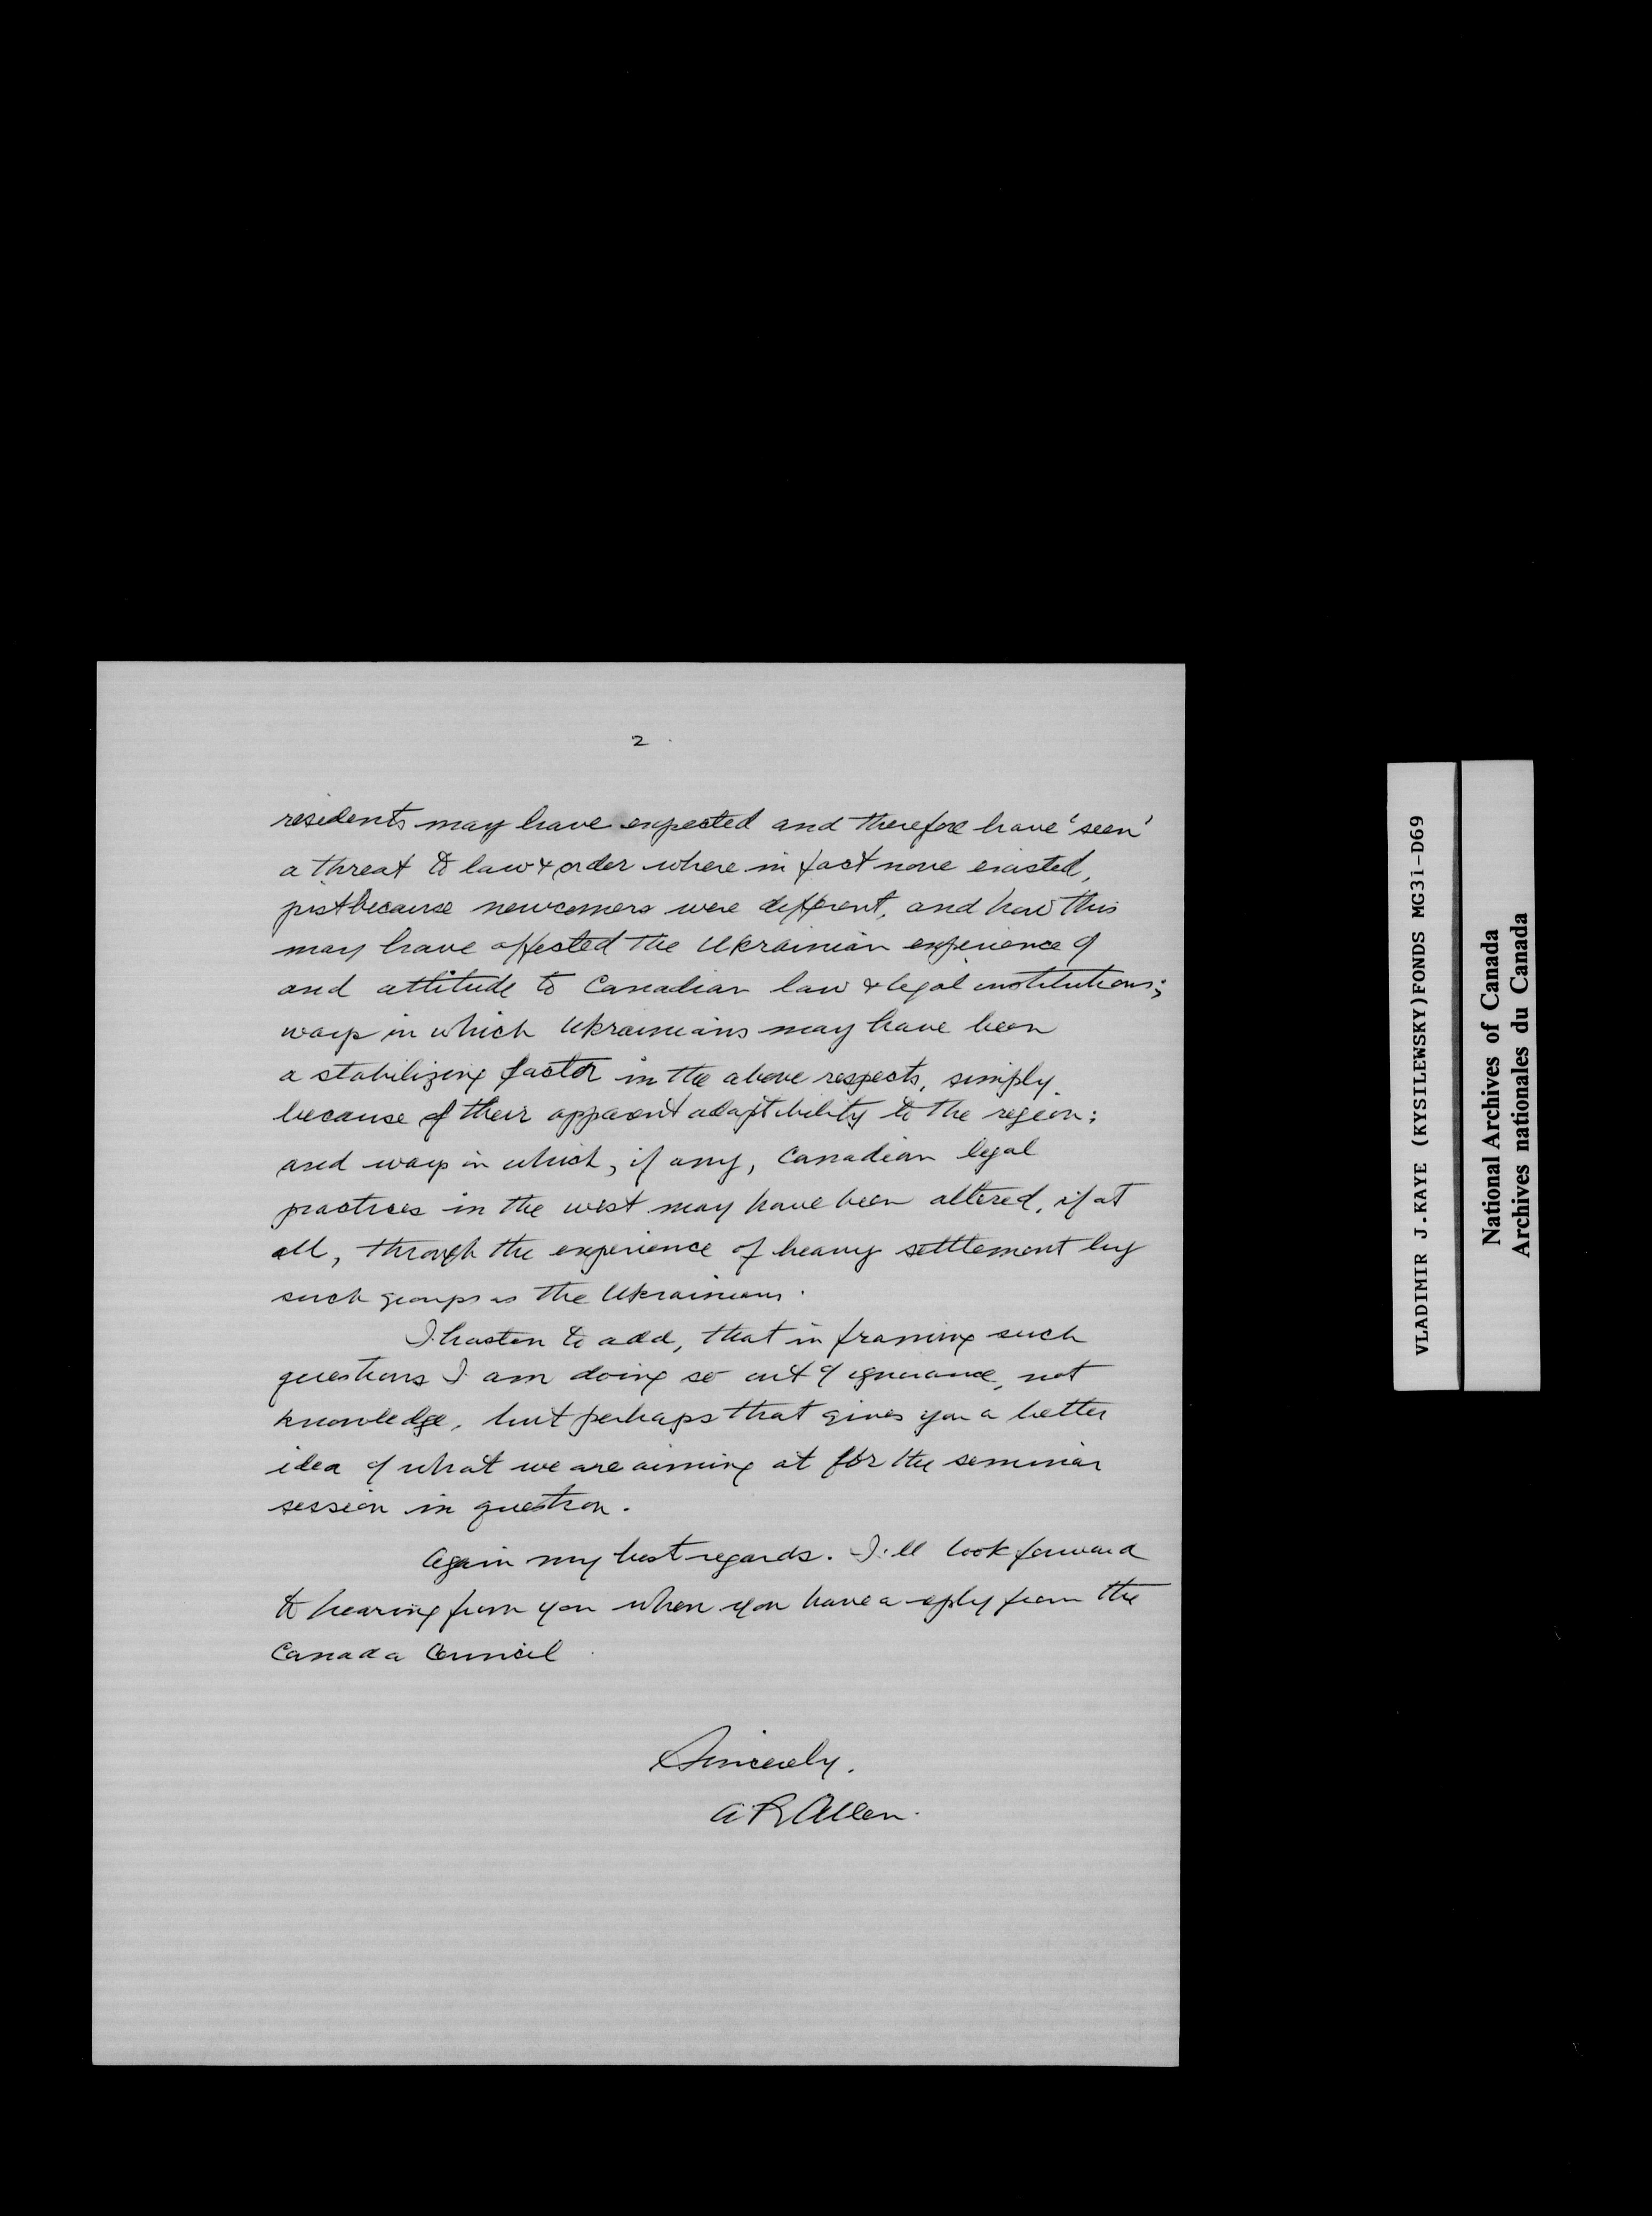 2
residents may have expected and therefore have 'seen'
a threat to law & order where in fact none existed,
just because newcomers were different, and how this
may have affected the Ukrainian experience of
and attitude to Canadian law & legal institutions;
ways in which Ukrainians may have been
a stabilizing factor in the above respects, simply
because of their apparent adaptibility to the region;
and ways in which, if any, Canadian legal
practices in the west may have been altered, if at
all, through the experience of heavy settlement by
such groups as the Ukrainians.
I hasten to add, that in framing such
questions I am doing so out of ignorance, not
knowledge, but perhaps that gives you a better
idea of what we are aiming at for the seminar
session in question.
Again my best regards. I'll look forward
to hearing from you when you have a reply from the
Canada Council.
Sincerely,
A R Allen.
VLADIMIR J.KAYE (KYSILEWSKY)FONDS MG31-D69
National Archives of Canada
Archives nationales du Canada